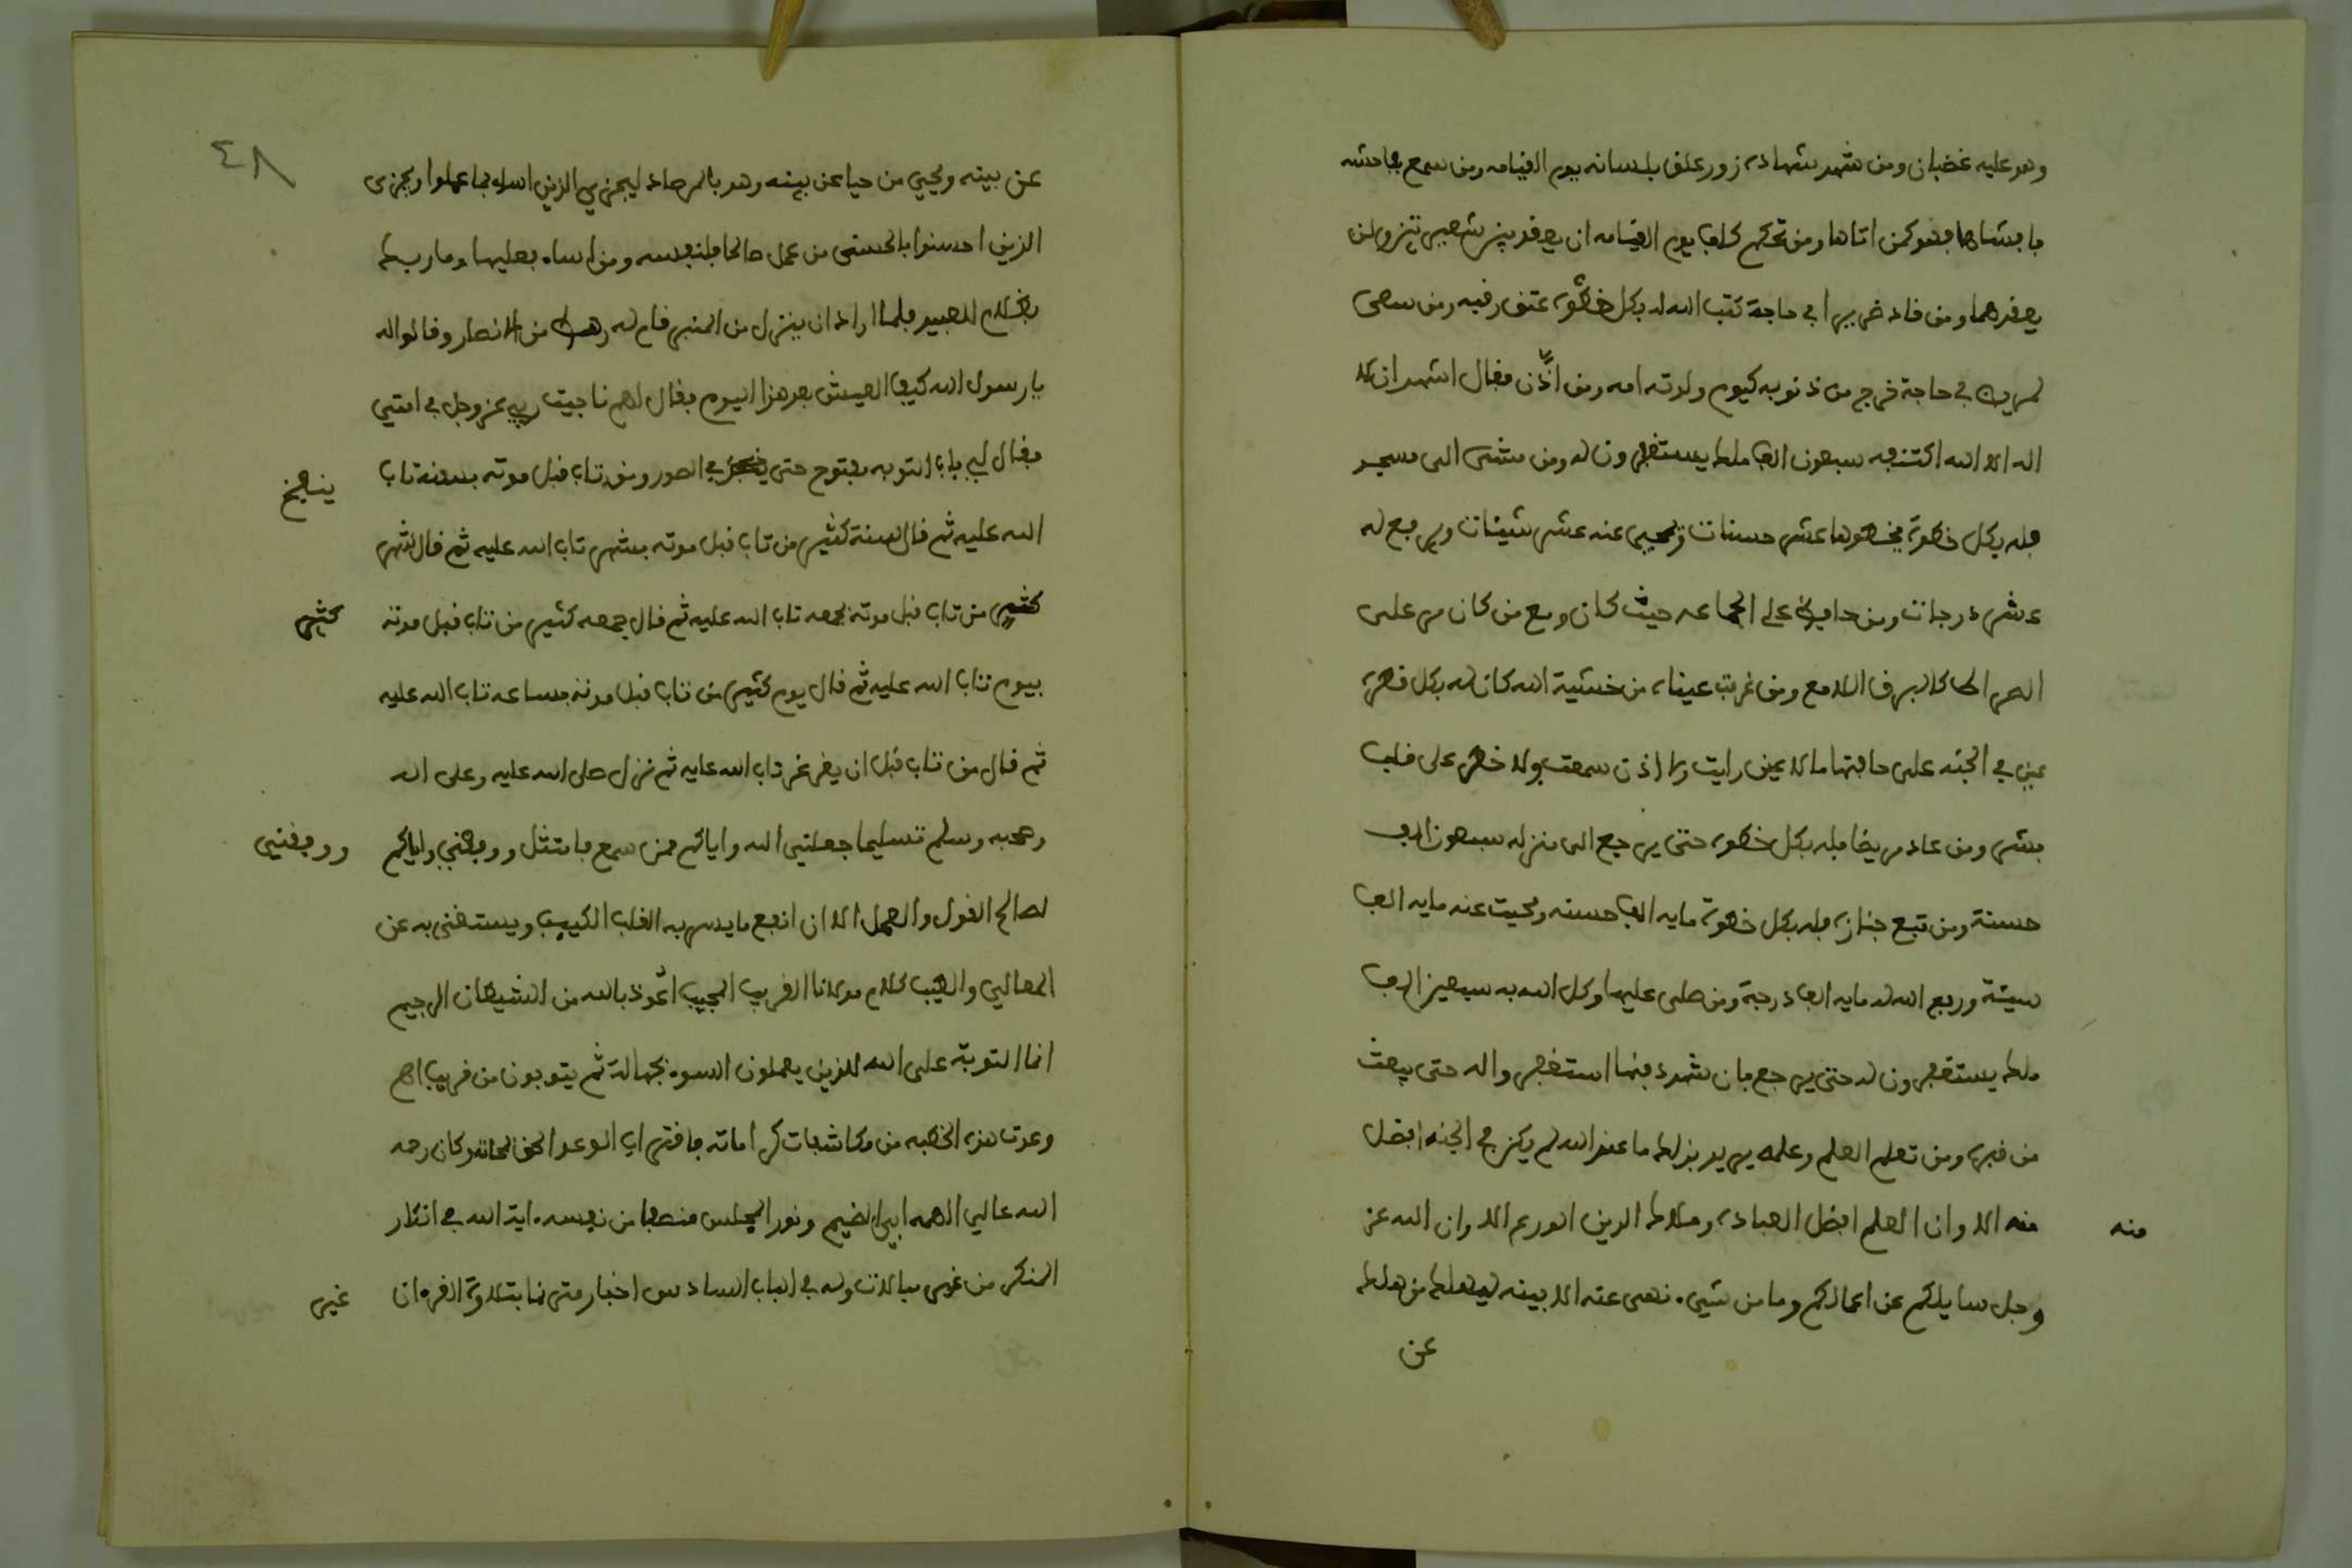 وهو عليه غضبان ومن شهد شهادة زور علق بلسانه يوم القيامه ومن سمع بفاحشه
فافشاها فهو كمن اتاها ومن تحكم كلف يوم القيامه ان يعقد بين شعيرتين ولن
يعقدهما ومن قاد ضريرا في حاجة كتب الله له بكل خطوة عتق رقبه ومن سعى
لمريض في حاجة خرج من ذنوبه كيوم ولدته امه ومن اذّن فقال اشهد ان لا
اله الا الله اكتنفه سبعون الف ملك يستغفرون له ومن مشى الى مسجد
فله بكل خطوة يخطوها عشر حسنات وتمحى عنه عشر سيئات ويرفع له
عشر درجات ومن حافظ على الجماعه حيث كان ومع من كان مر على
الصراط كالبرق اللامع ومن غربت عيناه من خشية الله كان له بكل قطرة
عين في الجنه على حافتها ما لا عين رات ولا اذن سمعت ولا خطر على قلب
بشر ومن عاد مريضا فله بكل خطوة حتى يرجع الى منزله سبعون الف
حسنة ومن تبع جنازة فله بكل خطوة مايه الف حسنه ومحيت عنه مايه الف
سيئة ورفع الله له مايه الف درجة ومن صلى عليها وكل الله به سبعين الف
ملك يستغفرون له حتى يرجع فان شهد دفنها استغفروا له حتى يبعث
من قبره ومن تعلم العلم وعلمه يريد بذلك ما عند الله لم يكن في الجنه افضل
منه الا وان العلم افضل العبادة وملاك الدين الورع الا وان الله عز
منه
وجل سايلكم عن اعمالكم وما من شيء نهى عنه الا بينه ليهلك من هلك
عن
٤٨
عن بينه ويحيى من حيا عن بينه وهو بالمرصاد ليجزي الذين اساءوا بما عملوا ويجزى
الذين احسنوا بالحسنى من عمل صالحا فلنفسه ومن اساء فعليها وما ربك
بظلام للعبيد فلما اراد ان ينزل من المنبر قام له رهط من الانصار وقالوا له
يا رسول الله كيف العيش بعد هذا اليوم فقال لهم ناجيت ربي عز وجل في امتي
فقال لي باب التوبه مفتوح حتى في الصور ومن تاب قبل موته بسنه تاب
ينفخ
الله عليه ثم قال السنة كثير من تاب قبل موته بشهر تاب الله عليه ثم قال الشهر
كثير من تاب قبل موته بجمعه تاب الله عليه ثم قال جمعه كثير من تاب قبل موته
كثير
بيوم تاب الله عليه ثم قال يوم كثير من تاب قبل موته بساعه تاب الله عليه
ثم قال من تاب قبل ان يغرغر تاب الله عليه ثم نزل صلى الله عليه وعلى اله
وصحبه وسلم تسليما جعلني الله واياكم ممن سمع فامتثل ووفقني واياكم
ووفقني
لصالح القول والعمل الا ان انفع ما يسر به القلب الكييب ويستغنى به عن
المعالي والطبب كلام مولانا القريب المجيب اعوذ بالله من الشيطان الرجيم
انما التوبة على الله للذين يعملون السوء بجهالة ثم يتوبون من قريب اهـ
وعدت هذه الخطبه من مكاشفات كراماته فاقتراب الوعد الحق وكان رحمه
الله عالي الهمه ابي الضيم ونور المجلس منصفا من نفسه اية الله في انكار
المنكر من غير مبالات وله في الباب السادس اخبار متى نما بتلاوة القرءان
غير